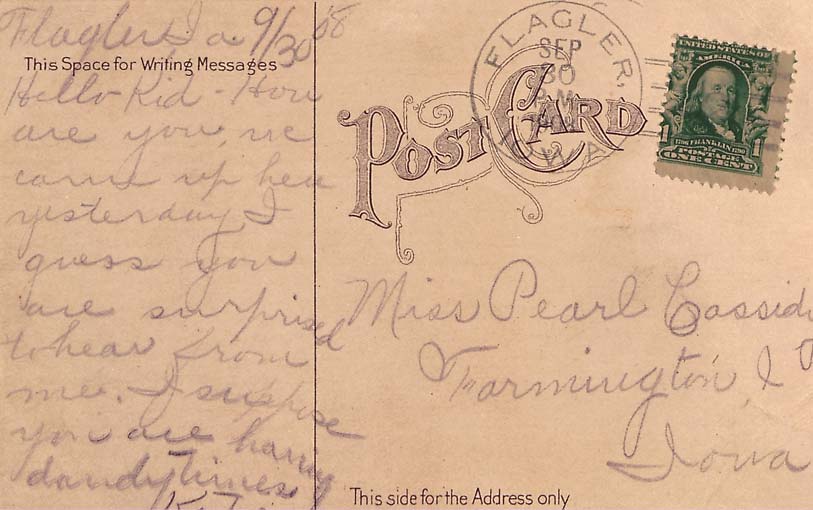 Flagler Ia 9/30 08
This Space for Writing Messages
Hello Kid - How
are you, we
came up here
yesterday I
guess you
are surprised
to hear from
me. I suppose
you are having
dandy times
POST CARD
FLAGLER,
SEP
30
1908
IOWA
UNITED STATES OF
AMERICA
1
1706 FRANKLIN 1790
POSTAGE
ONE CENT
Miss Pearl Cassid
Farmington,
Iowa
This side for the Address only